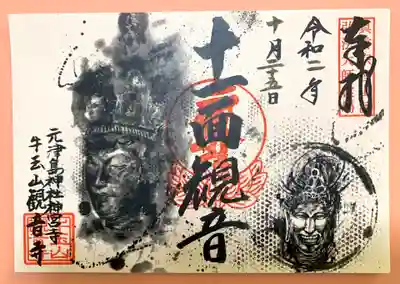 奉拝
令和二年
十月二十五日
十一面観音
元津島神社神宮寺
牛玉山観音寺